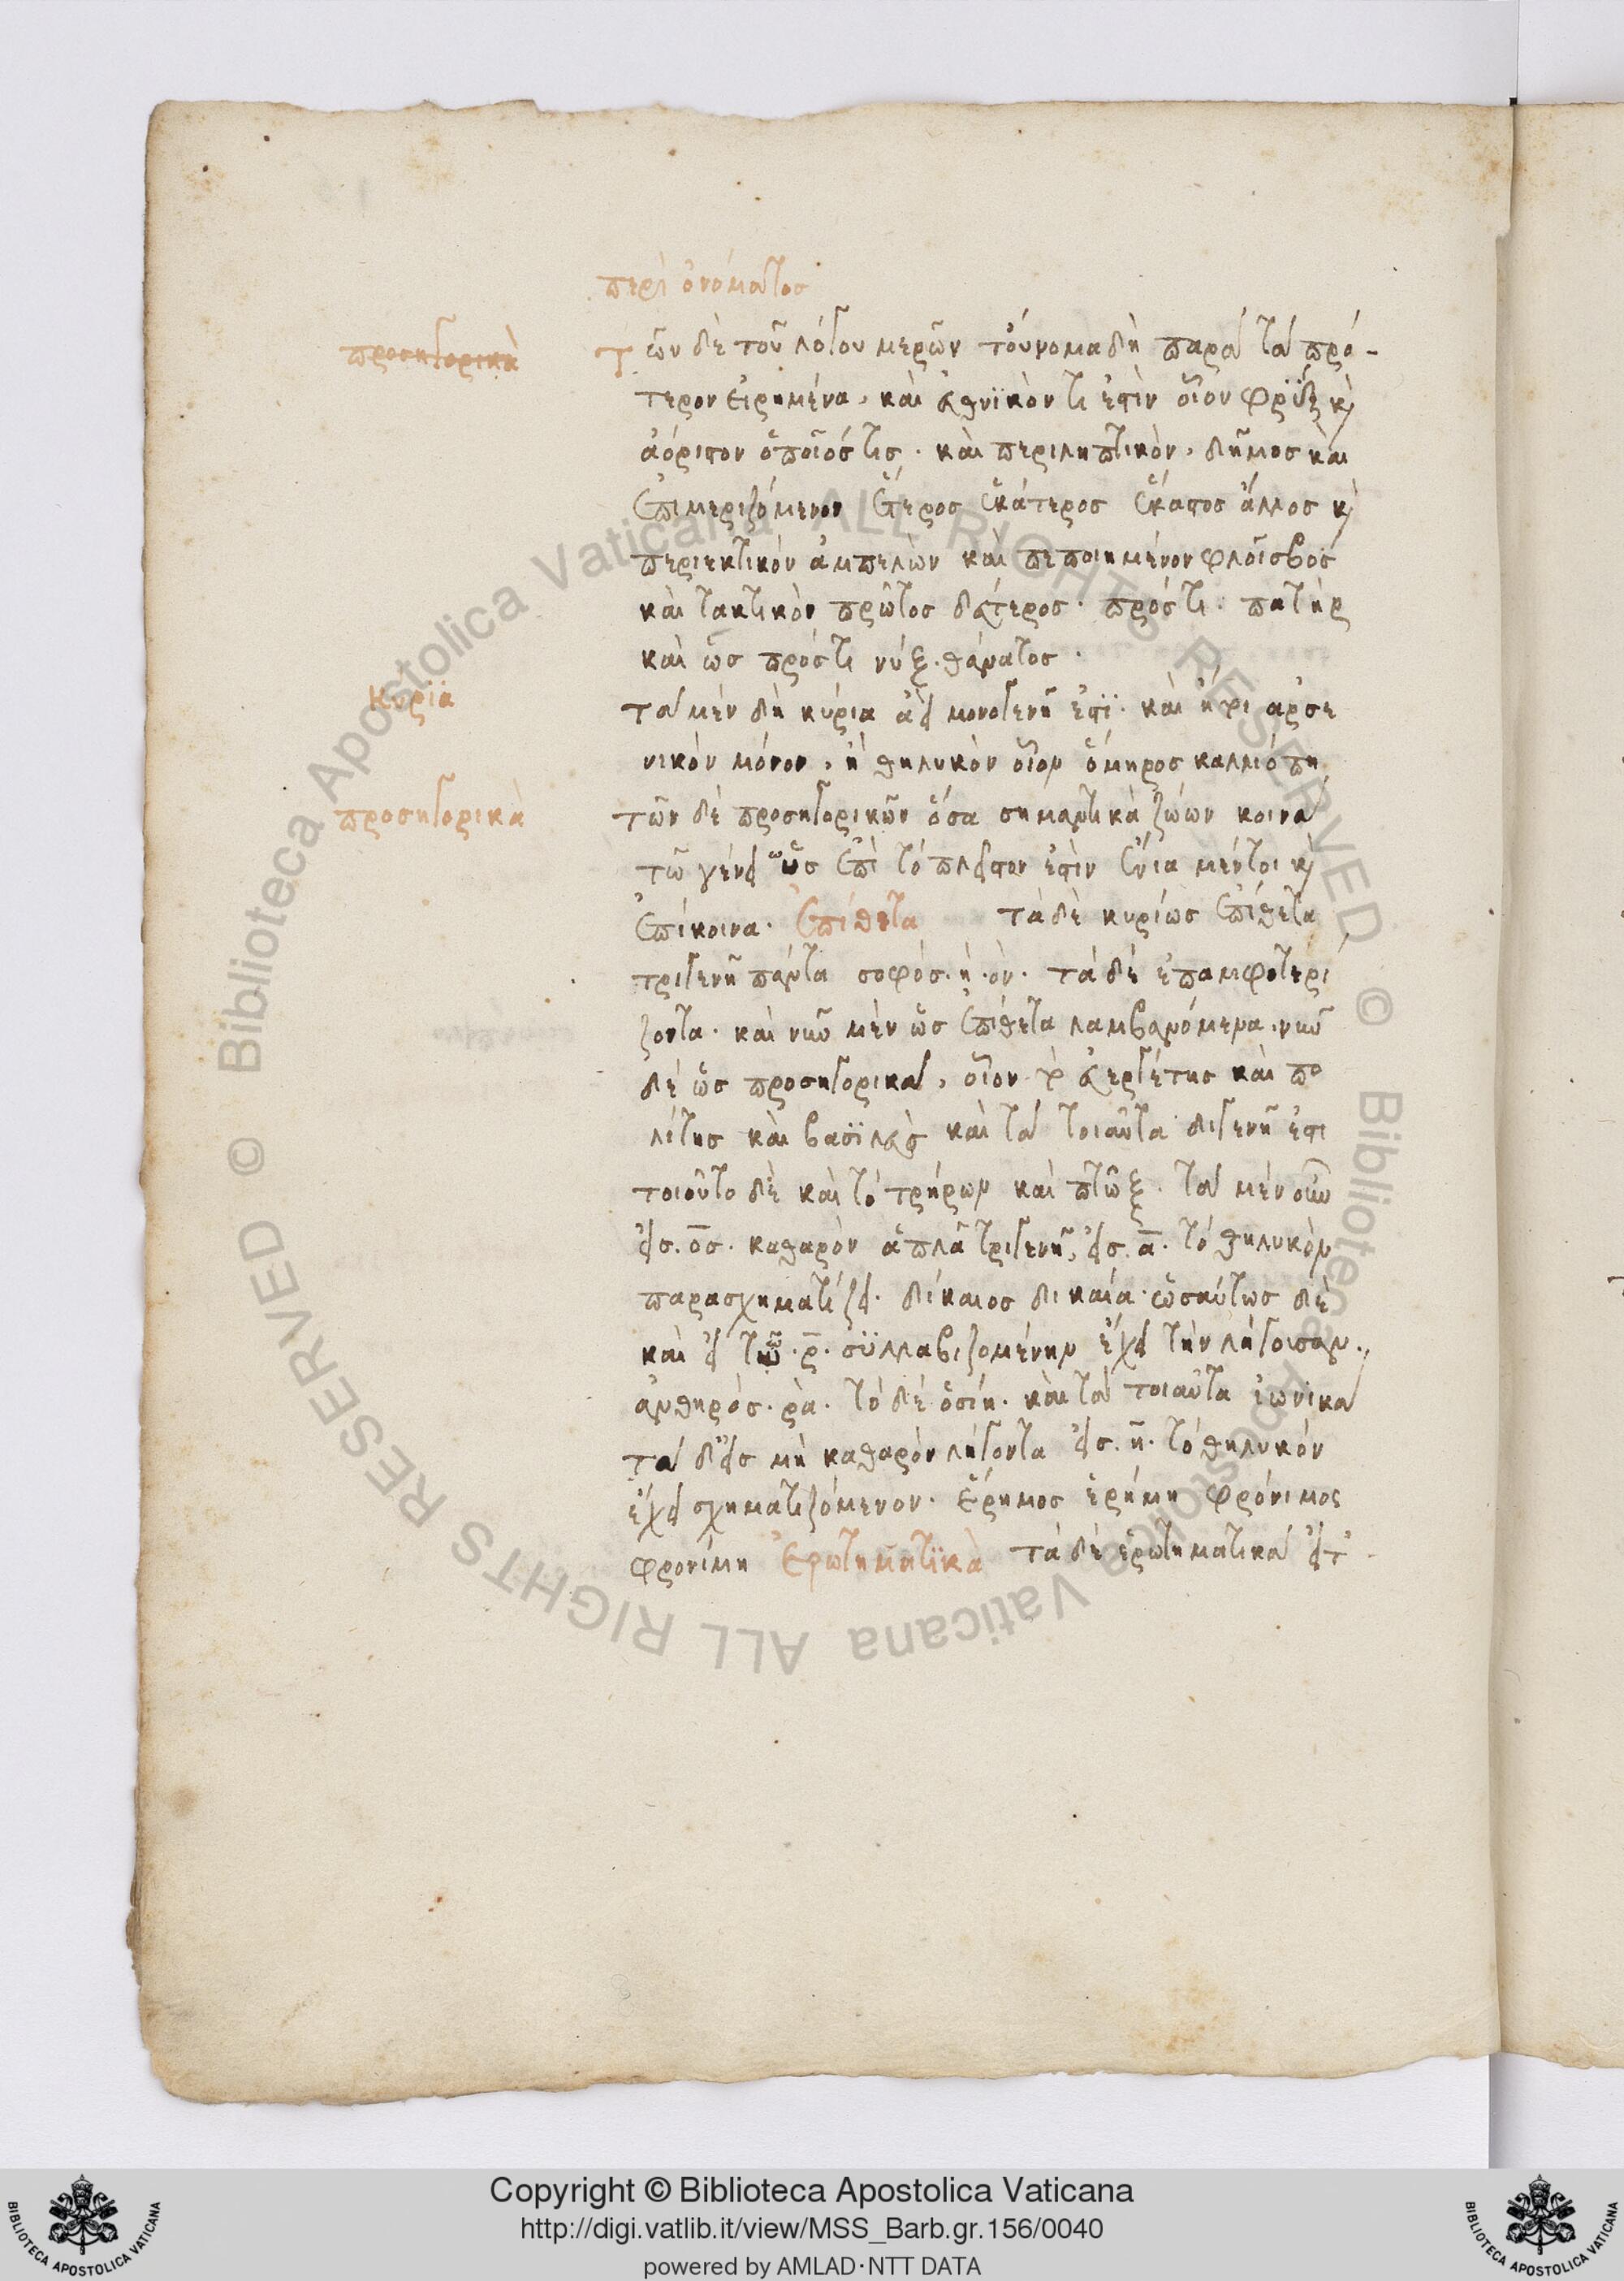 περὶ ὀνόματος
προσηγορικὰ
Τῶν δὲ τοῦ λόγου μερῶν τοὔνομα δὴ παρὰ τὰ πρό-
τερον εἰρημένα, καὶ ἐθνϊκὸν τι ἐστὶν οἷον φρῢξ κὶ
ἀόριστον ὁποῖός τις · καὶ περιληπτικὸν, δῆμος καὶ
ἐπιμεριζόμενον ἕτερος ἑκάτερος ἕκαστος ἄλλος κὶ
περιεκτικὸν ἀμπελὼν καὶ πεποιημένον φλοῖσβος
καὶ τακτικὸν πρῶτος δεύτερος · πρός τι · πατὴρ
καὶ ὡς πρός τι νύξ · θάνατος ·
κυρϊα
τὰ μὲν δὴ κύρια ἀεὶ μονογενῆ ἐστϊ · καὶ ἤτοι ἀρσε
νικὸν μόνον, ἢ θηλυκὸν οἷον ὅμηρος καλλιόπη
προσηγορικὰ
τῶν δὲ προσηγορικῶν ὅσα σημαντικὰ ζώων κοινὰ
τῶ γένει ὡς ἐπὶ τὸ πλεῖστον ἐστὶν ἔνια μέντοι κὶ
ἐπίκοινα · ἐπίθετα τὰ δὲ κυρίως ἐπίθετα
τριγενῆ πάντα σοφός · ή · όν · τὰ δὲ ἐπαμφοτερί
ζοντα · καὶ νῦν μὲν ὡς ἐπίθετα λαμβανόμενα · νῦν
δὲ ὡς προσηγορικὰ, οἷον τὸ εὐεργέτης καὶ πο
λίτης καὶ βασϊλεὺς καὶ τὰ τοιαῦτα διγενῆ ἐστι
τοιοῦτο δὲ καὶ τὸ τρήρων καὶ πτῶξ · τὰ μὲν οὖν
εἰς · ος · καθαρὸν ἁπλᾶ τριγενῆ, εἰς · α · τὸ θηλυκὸν
παρασχηματίζει · δίκαιος δικαία · ὡσαύτως δὲ
καὶ εἰ τῶ · ρ · συλλαβιζομένην ἔχει τὴν λήγουσαν ·
ἀνθηρός · ρὰ · τὸ δὲ ὁσίη · καὶ τὰ τοιαῦτα ἰωνικὰ
τὰ δ' εἰς μὴ καθαρὸν λήγοντα εἰς · η · τὸ θηλυκὸν
ἔχει σχηματιζόμενον · ἔρημος ἐρήμη φρόνιμος
φρονίμη ἐρωτηματϊκὰ τὰ δὲ ἐρωτηματικὰ εἰτ
Copyright © Biblioteca Apostolica Vaticana
http://digi.vatlib.it/view/MSS_Barb.gr.156/0040
powered by AMLAD·NTT DATA
BIBLIOTECA APOSTOLICA VATICANA
BIBLIOTECA APOSTOLICA VATICANA
© Biblioteca Apostolica Vaticana ALL RIGHTS RESERVED
© Biblioteca Apostolica Vaticana ALL RIGHTS RESERVED